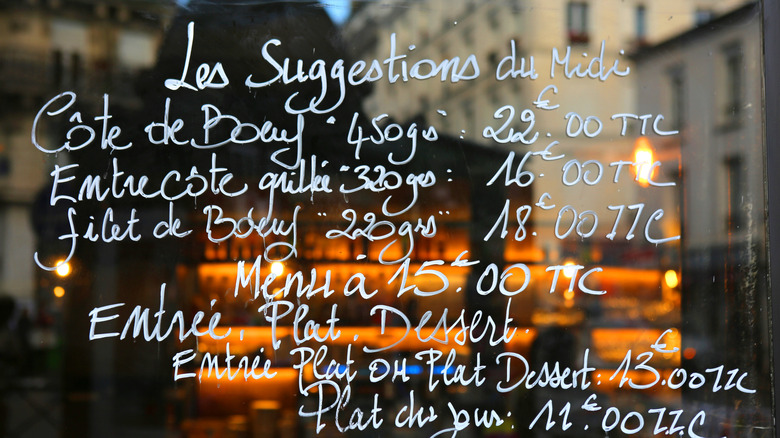 Les Suggestions du Midi
Côte de Boeuf "450grs" : 22.€00 TTC
Entrecôte grillée "320grs : 16.€00 TTC
filet de Boeuf "220grs" 18.€00 TTC
Menu à 15.€00 TTC
Entrée, Plat, Dessert.
Entrée Plat ou Plat Dessert : 13.€00 TTC
Plat du jour : 11.€00 TTC